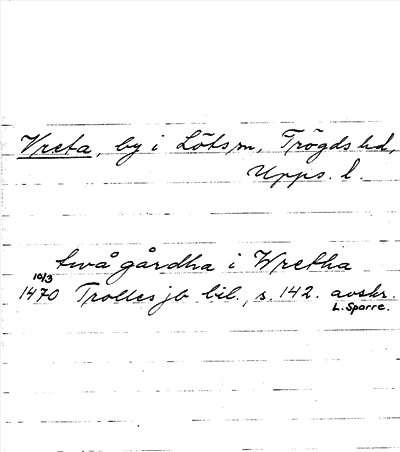 Vreta, by i Löts sn, Trögds hd,
Upps. l.
två gårdha i Wretha
10/3
1470 Trolles jb bil., s. 142. avskr.
L. Sparre.